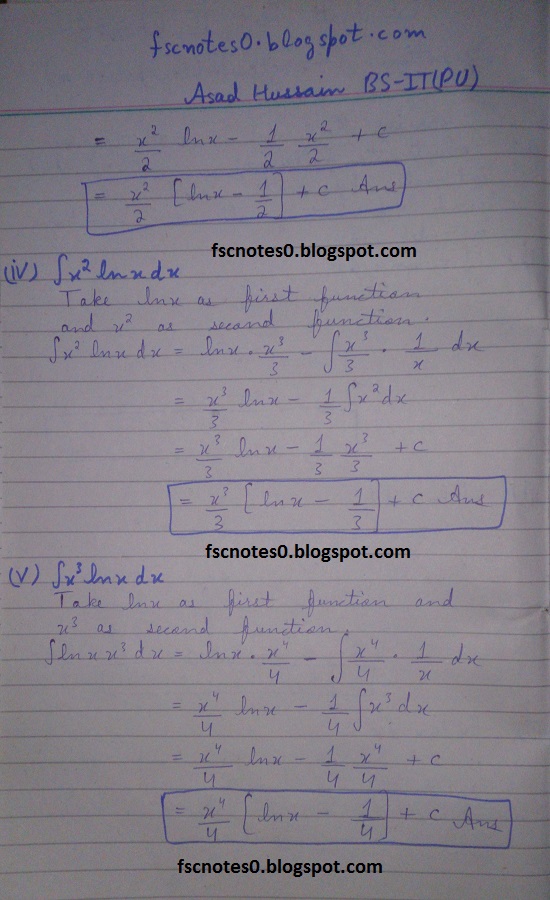 fscnotes0.blogspot.com
Asad Hussain BS-IT(PU)
= x²/2 lnx - 1/2 x²/2 + c
= x²/2 [lnx - 1/2] + c Ans
fscnotes0.blogspot.com
(iv) ∫x² ln x dx
Take lnx as first function
and x² as second function.
∫x² lnx dx = lnx · x³/3 - ∫x³/3 · 1/x dx
= x³/3 lnx - 1/3 ∫x² dx
= x³/3 lnx - 1/3 x³/3 + c
= x³/3 [lnx - 1/3] + c Ans
fscnotes0.blogspot.com
(v) ∫x³ lnx dx
Take lnx as first function and
x³ as second function.
∫lnx x³ dx = lnx · x⁴/4 - ∫x⁴/4 · 1/x dx
= x⁴/4 lnx - 1/4 ∫x³ dx
= x⁴/4 lnx - 1/4 x⁴/4 + c
= x⁴/4 [lnx - 1/4] + c Ans
fscnotes0.blogspot.com